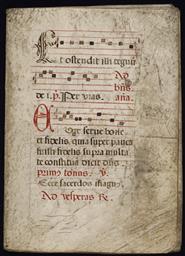 Et ostendit illi regnũ
Ad
bñs.
de i. p. Per vias. aña.
Auge serve bone
et fidelis, quia super pauca
fuisti fidelis supra multa
te constituã dicit dñs.
primi tonus. v.
Ecce sacerdos magn9.
Ad vesperas R.